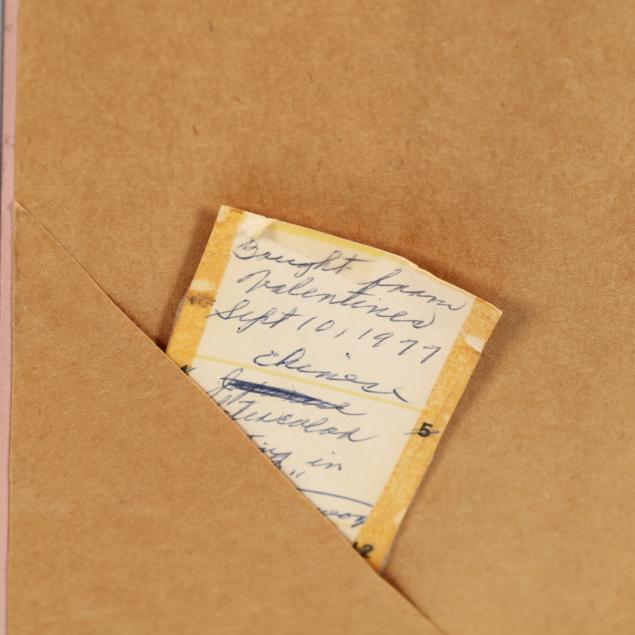 Bought from
Valentines
Sept 10, 1977
Chinese
tercolor
5
in
2